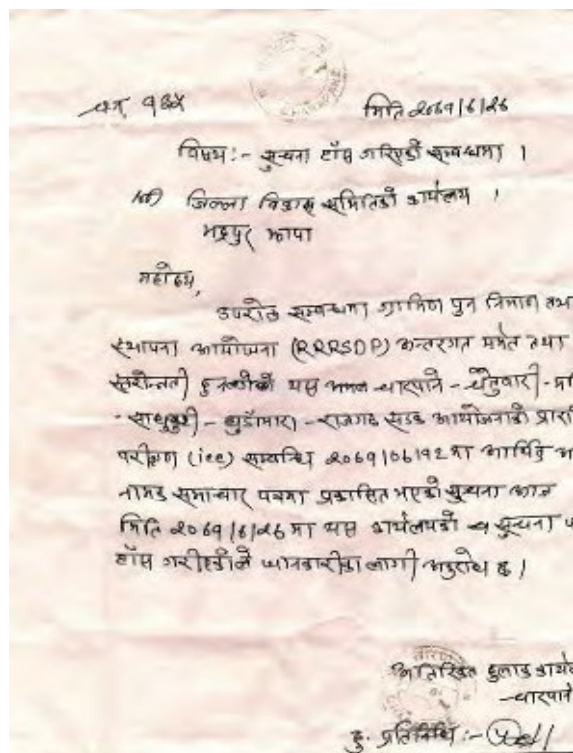 च.नं. १३५ मिति २०६९/६/२६
विषय :- सुचना टाँस गरिएको सम्बन्धमा ।
श्री जिल्ला विकास समितिको कार्यालय ।
भद्रपुर झापा
महोदय,
उपरोक्त सम्बन्धमा ग्रामिण पुन निर्माण तथा
स्थापना आयोजना (RRRSDP) अन्तरगत मर्मत तथा
स्तरोन्नती हुन यस चारपाने - धैजुबारी -
- - राजगढ सडक आयोजनाको
परीक्षण (iee) सम्बन्धि २०६९/०६/१२ मा आर्थिक
नामक समाचार पत्रमा प्रकासित भएको सूचना आज
मिति २०६९/६/२६ मा यस कार्यलयको सूचना
टाँस गरीएकोले जानकारीका लागी अनुरोध छ ।
अतिरिक्त हुलाक
चारपाने
हु. प्रतिनिधि :-